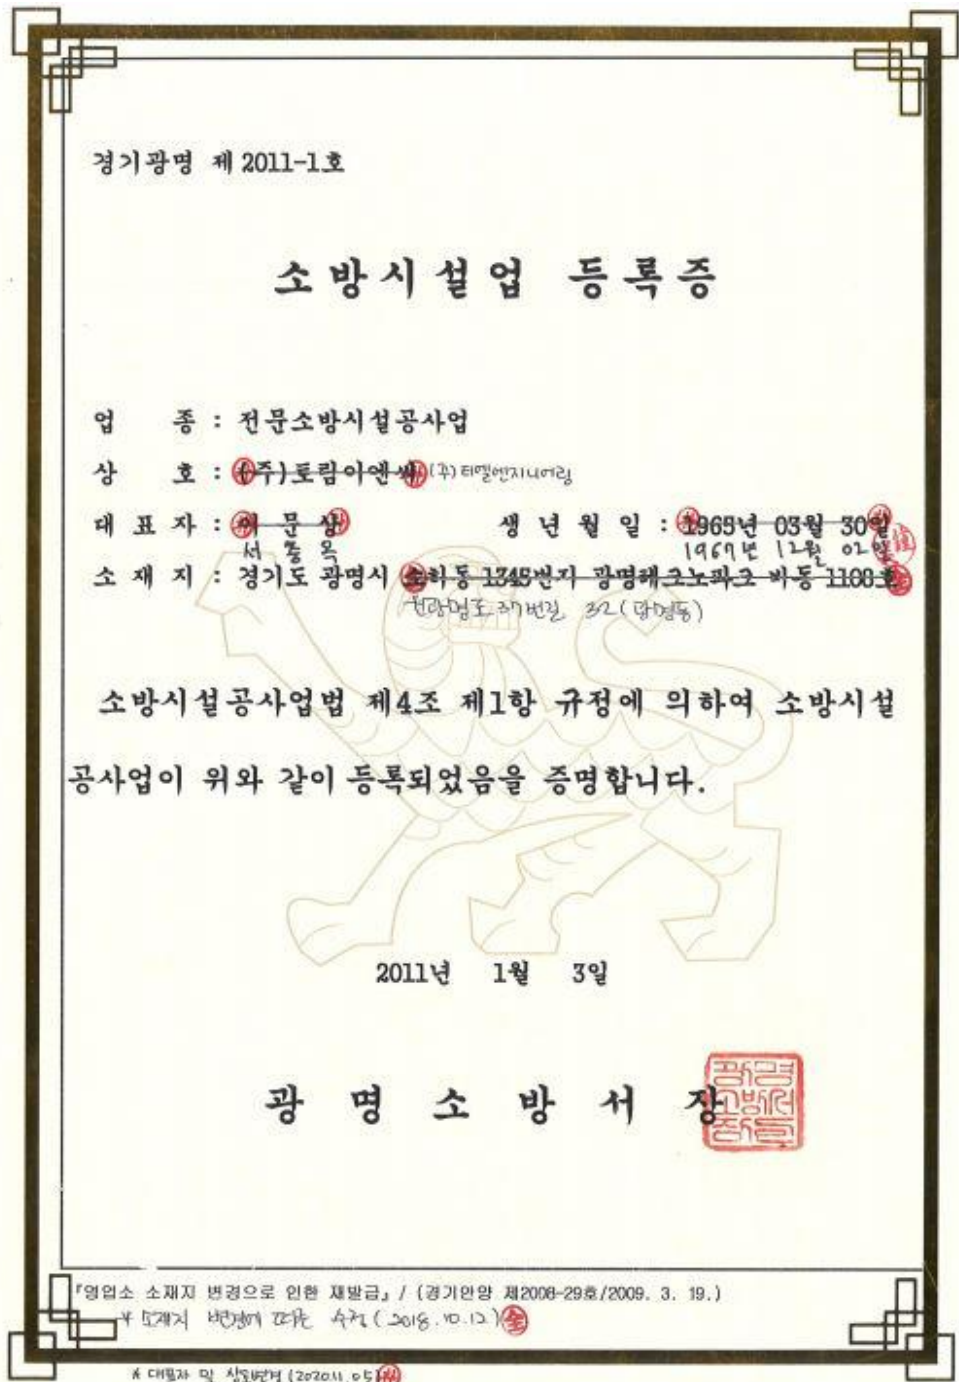 경기광명 제 2011-1호
소방시설업 등록증
업 종 : 전문소방시설공사업
상 호 : (주)토림이엔씨 (주)티엘엔지니어링
대 표 자 : 이 문 상 생 년 월 일 : 1965년 03월 30일
서 종 옥 1967년 12월 02일
소 재 지 : 경기도 광명시 소하동 1345번지 광명테크노파크 비동 1108호
37번길 32 (광명동)
소방시설공사업법 제4조 제1항 규정에 의하여 소방시설
공사업이 위와 같이 등록되었음을 증명합니다.
2011년 1월 3일
광 명 소 방 서 장
광명소방서장
『영업소 소재지 변경으로 인한 재발급』 / (경기안양 제2008-29호/2009. 3. 19.)
* 소재지 변경에 따른 수정 (2018.10.12)
* 대표자 및 상호변경 (2020.11.05)